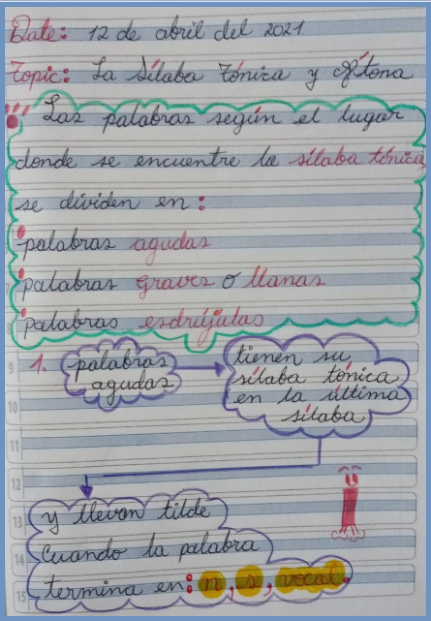 Date: 12 de abril del 2021.
Topic: La Sílaba tónica y Átona
Las palabras según el lugar
donde se encuentre la sílaba tónica
se dividen en:
palabras agudas
palabras graves o llanas
palabras esdrújulas
1. palabras
agudas
tienen su
sílaba tónica
en la última
sílaba
y llevan tilde
cuando la palabra
termina en: n, s, vocal.
8
9
10
11
12
13
14
15